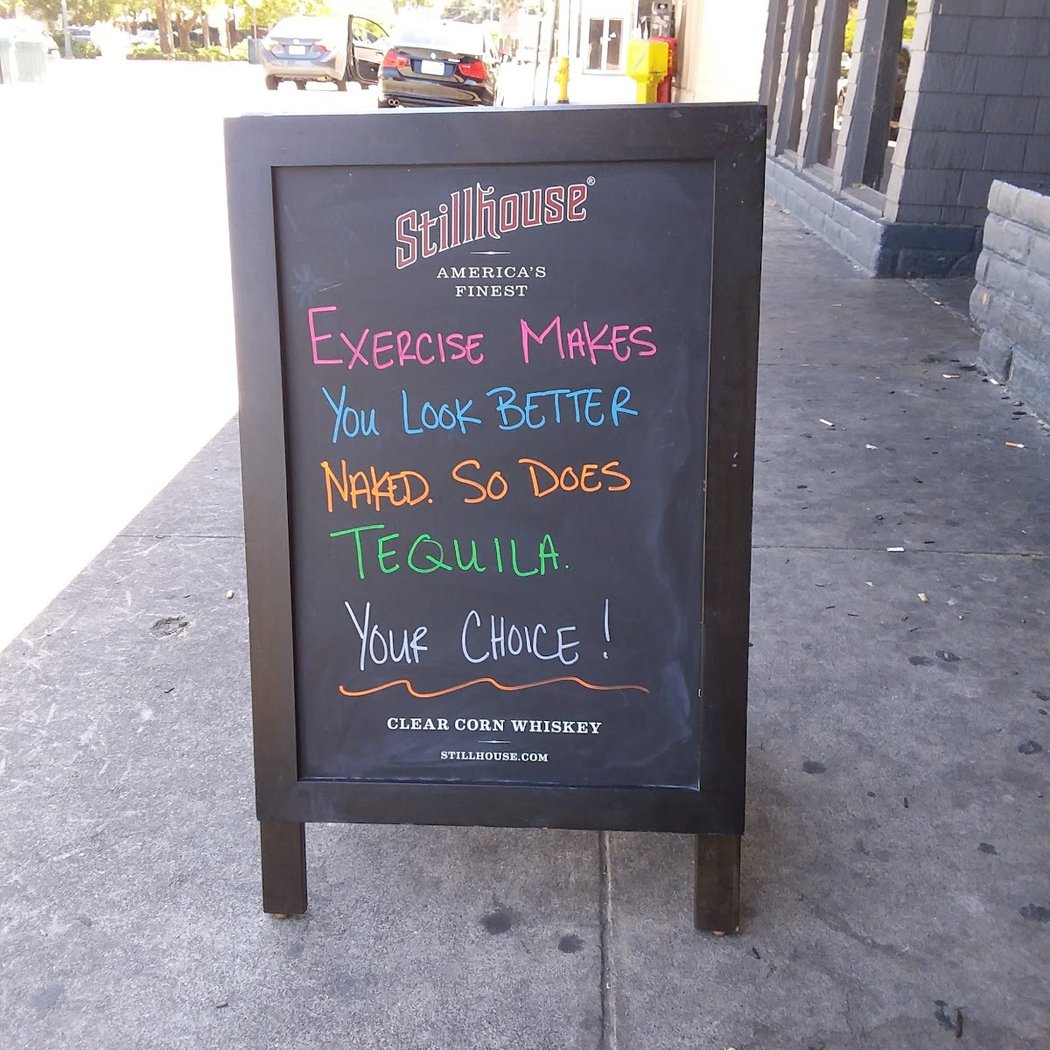 Stillhouse®
AMERICA'S
FINEST
EXERCISE MAKES
YOU LOOK BETTER
NAKED. SO DOES
TEQUILA.
YOUR CHOICE!
CLEAR CORN WHISKEY
STILLHOUSE.COM